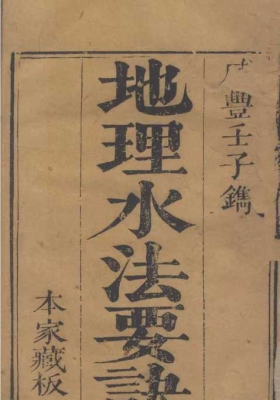 咸豐壬子鐫
地理水法要訣
本家藏板